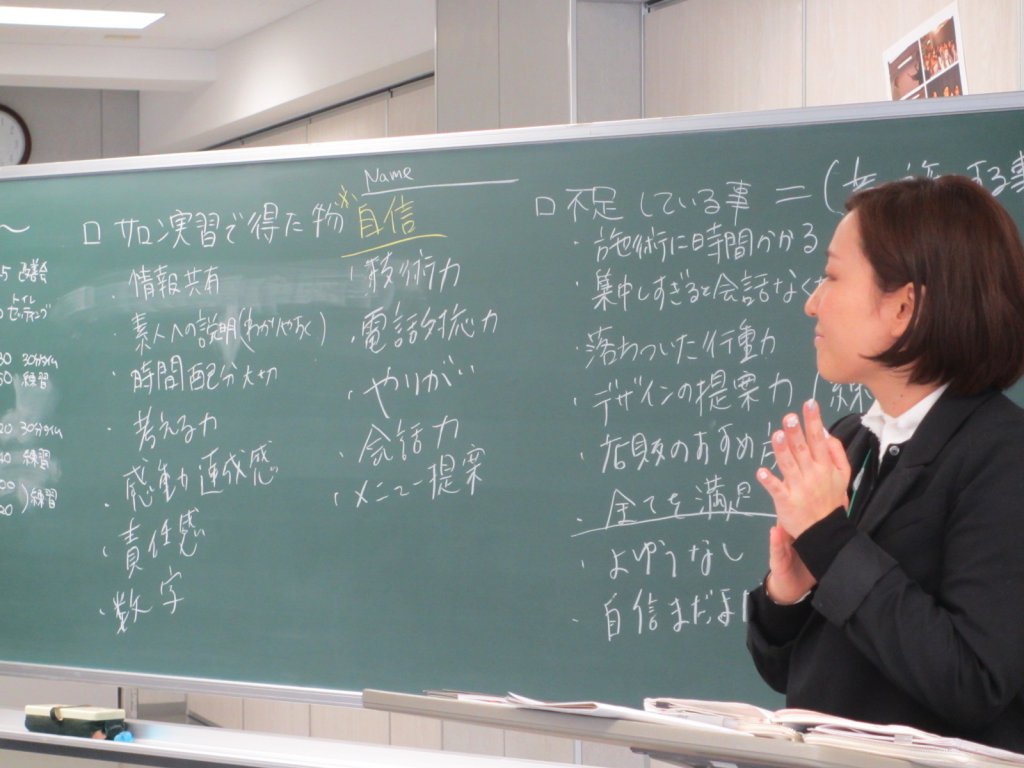 Name
30分タイム
練習
30分タイム
練習
)練習
□ サロン演習で得た物
※自信
・情報共有
・素人への説明(わかりやすく)
・時間配分大切
・考える力
・感動達成感
・責任感
・数字
・技術力
・電話対応力
・やりがい
・会話力
・メニュー提案
□ 不足している事 = (
・施術に時間かかる
・集中しすぎると会話なく
・落ちついた行動
・デザインの提案力
・店販のおすすめ
・全てを満足
・よゆうなし
・自信まだ